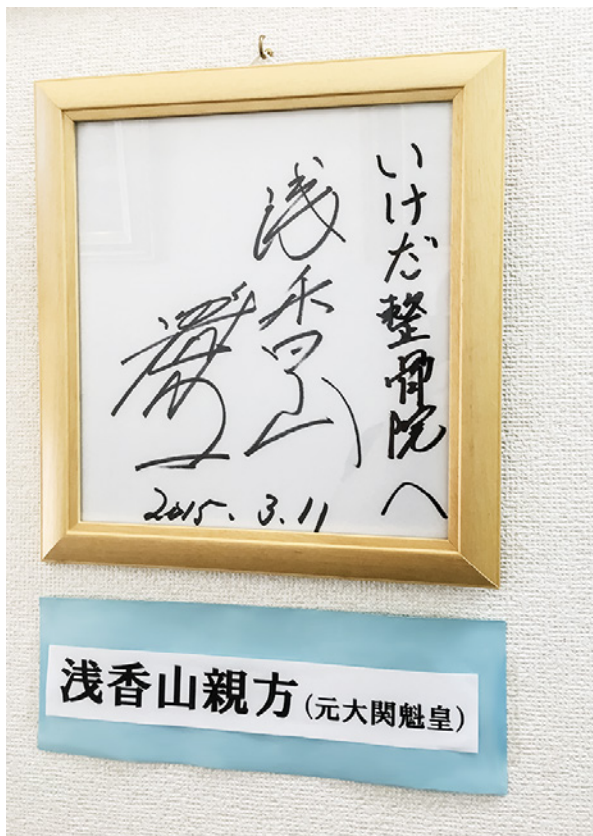 いけだ整骨院へ
浅香山
2015.3.11
浅香山親方(元大関魁皇)